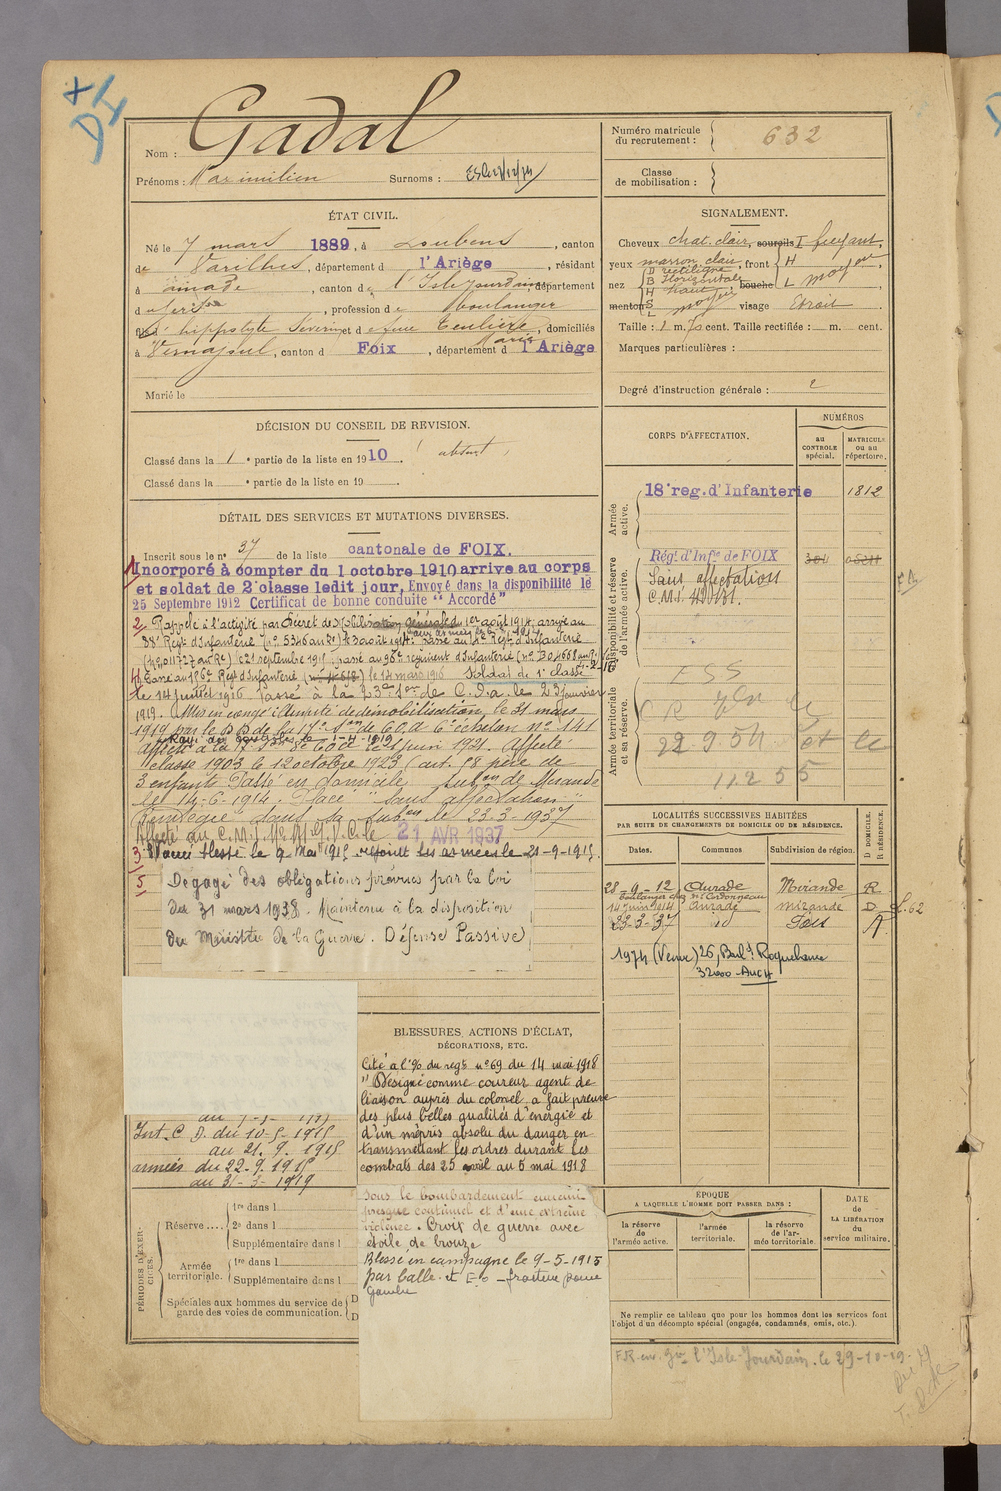 Nom : Gadal
Prénoms : Maximilien Surnoms :
Numéro matricule du recrutement : 632
Classe de mobilisation :
ÉTAT CIVIL.
Né le 7 mars 1889, à Loubens, canton
de Varilhes, département d l'Ariège, résidant
à aurade, canton de l'Isle jourdain, département
d u Gers, profession de boulanger
fils d'hippolyte Séverin et de feue Teulière Marie, domiciliés
à Vernajoul, canton d Foix, département d l'Ariège
Marié le
SIGNALEMENT.
Cheveux chat. clair, sourcils I fuyant,
yeux marron clair, front H
nez D rectiligne B Horizontale H haut S moyen L bouche L moyen
menton visage Etroit
Taille : 1 m. 70 cent. Taille rectifiée : m. cent.
Marques particulières :
Degré d'instruction générale : 2
DÉCISION DU CONSEIL DE REVISION.
Classé dans la 1e partie de la liste en 1910. absent
Classé dans la e partie de la liste en 19
DÉTAIL DES SERVICES ET MUTATIONS DIVERSES.
Inscrit sous le n° 37 de la liste cantonale de FOIX.
1 Incorporé à compter du 1 octobre 1910 arrive au corps
et soldat de 2e classe ledit jour, Envoyé dans la disponibilité le
25 Septembre 1912 Certificat de bonne conduite "Accordé"
2 Rappelé à l'activité par Décret de mobilisation générale du 1er août 1914, arrivé au
Régt d'Infanterie 3 août 1914. Passé au Régt d'Infanterie
le 21 septembre 1915, passé au 96e régiment d'Infanterie
4 Passé au Régt d'Infanterie le 12 mars 1916 Soldat de 1e classe
le 14 juillet 1916 Passé à la 23e de C.O.a. le 23 janvier
1919. Mis en congé illimité de démobilisation, le 31 mars
1919 par le de la 17e de C.O.A 6e échelon n° 141
Affecté à la 17e de COA le 1 juin 1921. Affecté
classe 1903 le 12 octobre 1923 (art. 58 père de
3 enfants Passé en domicile, Subon de Mirande
le 14-6-1914. Placé "sans affectation"
dans sa Subon le 23-3-1937
Affecté au C.M.I. le 21 AVR 1937
3 Blessé le 9 Mai 1915, rejoint les armées le 21-9-1915.
5 Dégagé des obligations prévues par la loi
du 31 mars 1938. Maintenu à la disposition
du Ministre de la Guerre. Défense Passive
CORPS D'AFFECTATION.
NUMÉROS
au CONTROLE spécial.
MATRICULE ou au répertoire.
Armée active.
18e reg. d'Infanterie 1812
Disponibilité et réserve de l'armée active.
Régt. d'Infie de FOIX
Sans affectation
C.M.I.
Armée territoriale et sa réserve.
FSS
22954 et le
11255
LOCALITÉS SUCCESSIVES HABITÉES
PAR SUITE DE CHANGEMENTS DE DOMICILE OU DE RÉSIDENCE.
Dates. Communes Subdivision de région. D DOMICILE. R RÉSIDENCE.
28-9-12 Aurade Mirande R
boulanger chez Mr Cordonneau
14 juin 1914 Aurade Mirande D
23-3-37 id
1974 (Veuve) 26, Bould Roquelaure
32000 - AUCH
BLESSURES, ACTIONS D'ÉCLAT,
DÉCORATIONS, ETC.
Cité à l'% du régt n°69 du 14 mai 1918
"Désigné comme coureur agent de
liaison auprès du colonel a fait preuve
des plus belles qualités d'énergie et
d'un mépris absolu du danger en
transmettant les ordres durant les
combats des 25 avril au 5 mai 1918
sous le bombardement ennemi
presque continuel et d'une extrême
violence. Croix de guerre avec
étoile de bronze
Blessé en campagne le 9-5-1915
par balle.
Int. C D. du 10-5-1915
au 21. 9. 1915
armées du 22-9 1915
au 31-3-1919
PÉRIODES D'EXERCICES.
Réserve .... 1re dans l
2e dans l
Supplémentaire dans l
Armée territoriale. 1re dans l
Supplémentaire dans l
Spéciales aux hommes du service de garde des voies de communication. D
D
ÉPOQUE
A LAQUELLE L'HOMME DOIT PASSER DANS :
la réserve de l'armée active. l'armée territoriale. la réserve de l'armée territoriale.
DATE DE LA LIBÉRATION du service militaire.
Ne remplir ce tableau que pour les hommes dont les services font
l'objet d'un décompte spécial (engagés, condamnés, omis, etc.).
l'Isle-Jourdain. le 29-10-19